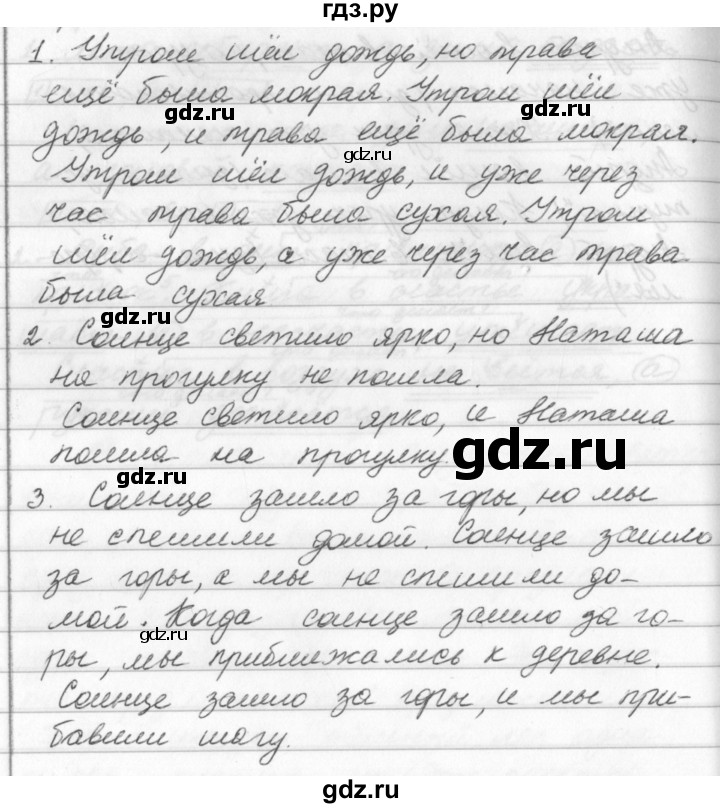 гдз.ру
1. Утром шёл дождь, но трава
ещё была мокрая. Утром шёл
gdz.ru
gdz.ru
дождь, и трава ещё была мокрая.
gdz.ru
Утром шёл дождь, и уже через
час трава была сухая. Утром
gdz.ru
шёл дождь, а уже через час трава
gdz.ru
была сухая
gdz.ru
2. Солнце светило ярко, но Наташа
на прогулку не пошла.
gdz.ru
Солнце светило ярко, и Наташа
пошла на прогулку.
gdz.ru
gdz.ru
3. Солнце зашло за горы, но мы
не спешили домой. Солнце зашло
gdz.ru
за горы, а мы не спешили до-
мой. Когда солнце зашло за го-
gdz.ru
ры, мы приближались к деревне.
gdz.ru
Солнце зашло за горы, и мы при-
gdz.ru
бавили шагу.
gdz.ru